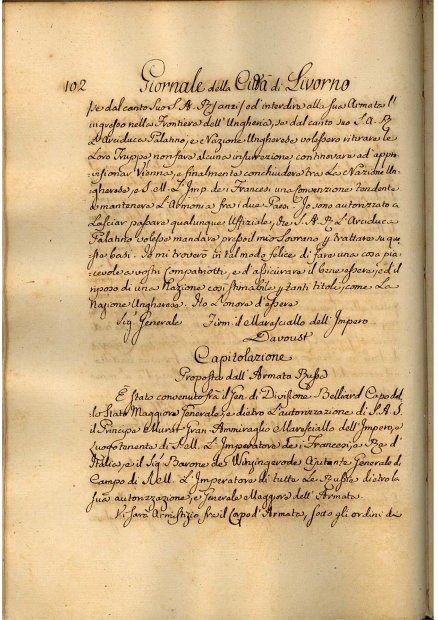 102 Giornale della Città di Livorno
se dal canto suo S. A. R.
ingresso nelle Frontiere dell' Ungheria, se dal canto suo S. A. R.
L'Arciduca Palatino, e Nazione Ungherese volessero ritirare le
Loro Truppe, non fare alcuna insurrezione, continovare ad appro
visionar Vienna, e finalmente conchiudere tra La Nazione Un
gherese e S. M. L'Imp. de i Francesi una Convenzione tendente
a mantenere L'Armonia fra i due Paesi. Io sono autorizzato a
Lasciar passare qualunque Uffiziale, che S. A. R. L'Arciduca
Palatino volesse mandare presso il mio Sovrano p trattare su que
ste basi. Io mi troverò in tal modo felice di fare una cosa pia
cevole a vostri Compatriotti, e d'assicurare il benessere, ed il
riposo di una Nazione così stimabile p tanti titoli, come La
Nazione Ungherese. Ho L'onore d'essere
Sig. Generale Firm. il Maresciallo dell' Impero
Davoust
Capitolazione
Proposta dall' Armata Russa
È stato convenuto fra il Gen. di Divisione Belliard Capo del
lo Stato Maggiore Generale, e dietro L'autorizzazione di S. A. S.
il Principe Murat Gran Ammiraglio Maresciallo dell' Impero, e
Luogotenente di S. M. L'Imperatore de i Francesi, e Re d'
Italia, e il Sig. Barone de Winzingerode Ajutante Generale di
Campo di S. M. L'Imperatore di tutte Le Russie dietro la
sua autorizzazione, e Generale Maggiore dell' Armata.
Vi sarà Armistizio fra il Corpo d'Armata, sotto gli ordini di